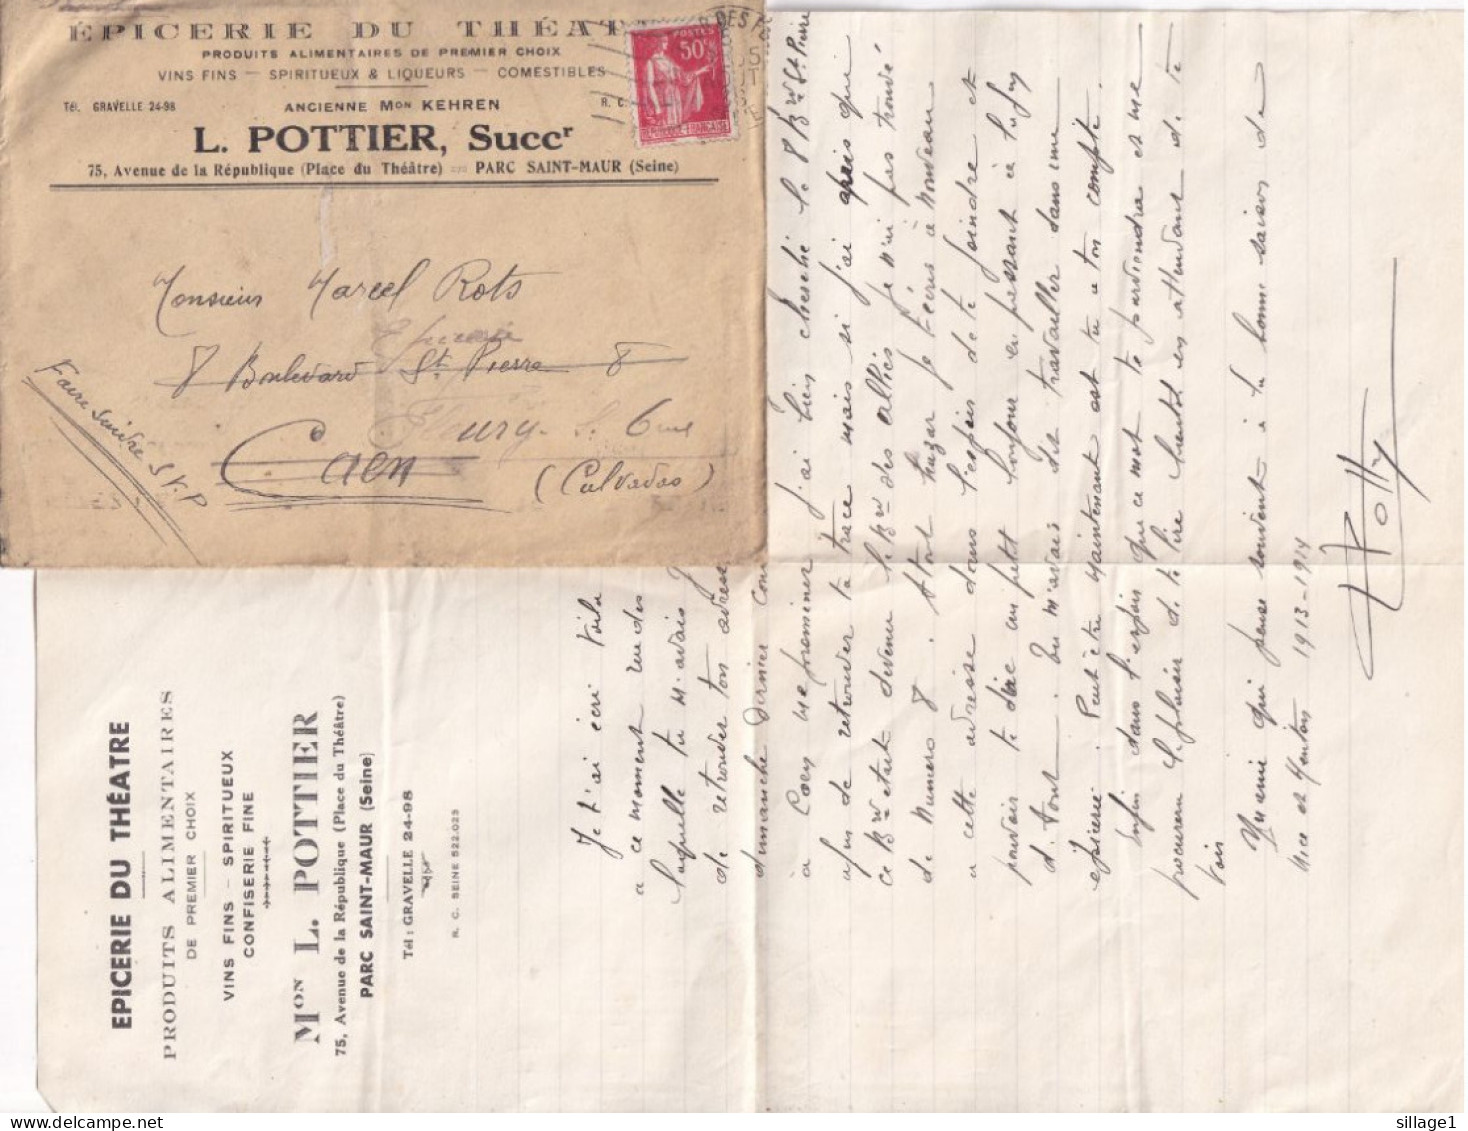 ÉPICERIE DU THÉAT
PRODUITS ALIMENTAIRES DE PREMIER CHOIX
VINS FINS — SPIRITUEUX & LIQUEURS — COMESTIBLES
Tél. GRAVELLE 24-98
ANCIENNE Mon KEHREN
R. C.
L. POTTIER, Succr
75, Avenue de la République (Place du Théâtre) — PARC SAINT-MAUR (Seine)
POSTES
50c
REPUBLIQUE FRANÇAISE
Monsieur Marcel Rots
Epicerie
8 Boulevard St Pierre 8
Fleury s. Orne
Caen
(Calvados)
Faire Suivre S.V.P
EPICERIE DU THÉATRE
PRODUITS ALIMENTAIRES
DE PREMIER CHOIX
VINS FINS - SPIRITUEUX
CONFISERIE FINE
Mon L. POTTIER
75, Avenue de la République (Place du Théâtre)
PARC SAINT-MAUR (Seine)
Tél : GRAVELLE 24-98
R. C. SEINE 522.023
Je t'ai écri voila
a ce moment rue des
laquelle tu m'avais
de retrouver ton adresse
dimanche dernier
à Caen me promener j'ai bien cherché le 8 Bd St Pierre
afin de retrouver ta trace mais si j'ai apris que
ce Bd etait devenu le Bd des alliés je n'ai pas trouvé
de Numero 8. A tout hazar je t'écris à nouveau
a cette adresse dans l'espoir de te joindre et
pouvoir te dire un petit bonjour en passant
d. tout. Tu m'avais dit travailler dans une
épicerie. Peut être maintenant est tu a ton compte.
Enfin dans l'espoir que ce mot te parviendra et me
procurera le plaisir de te lire bientot en attendant de te
voir
qui pense souvent à tu bonne saison de
Nice et Menton 1913-1914
Potty
sillage1